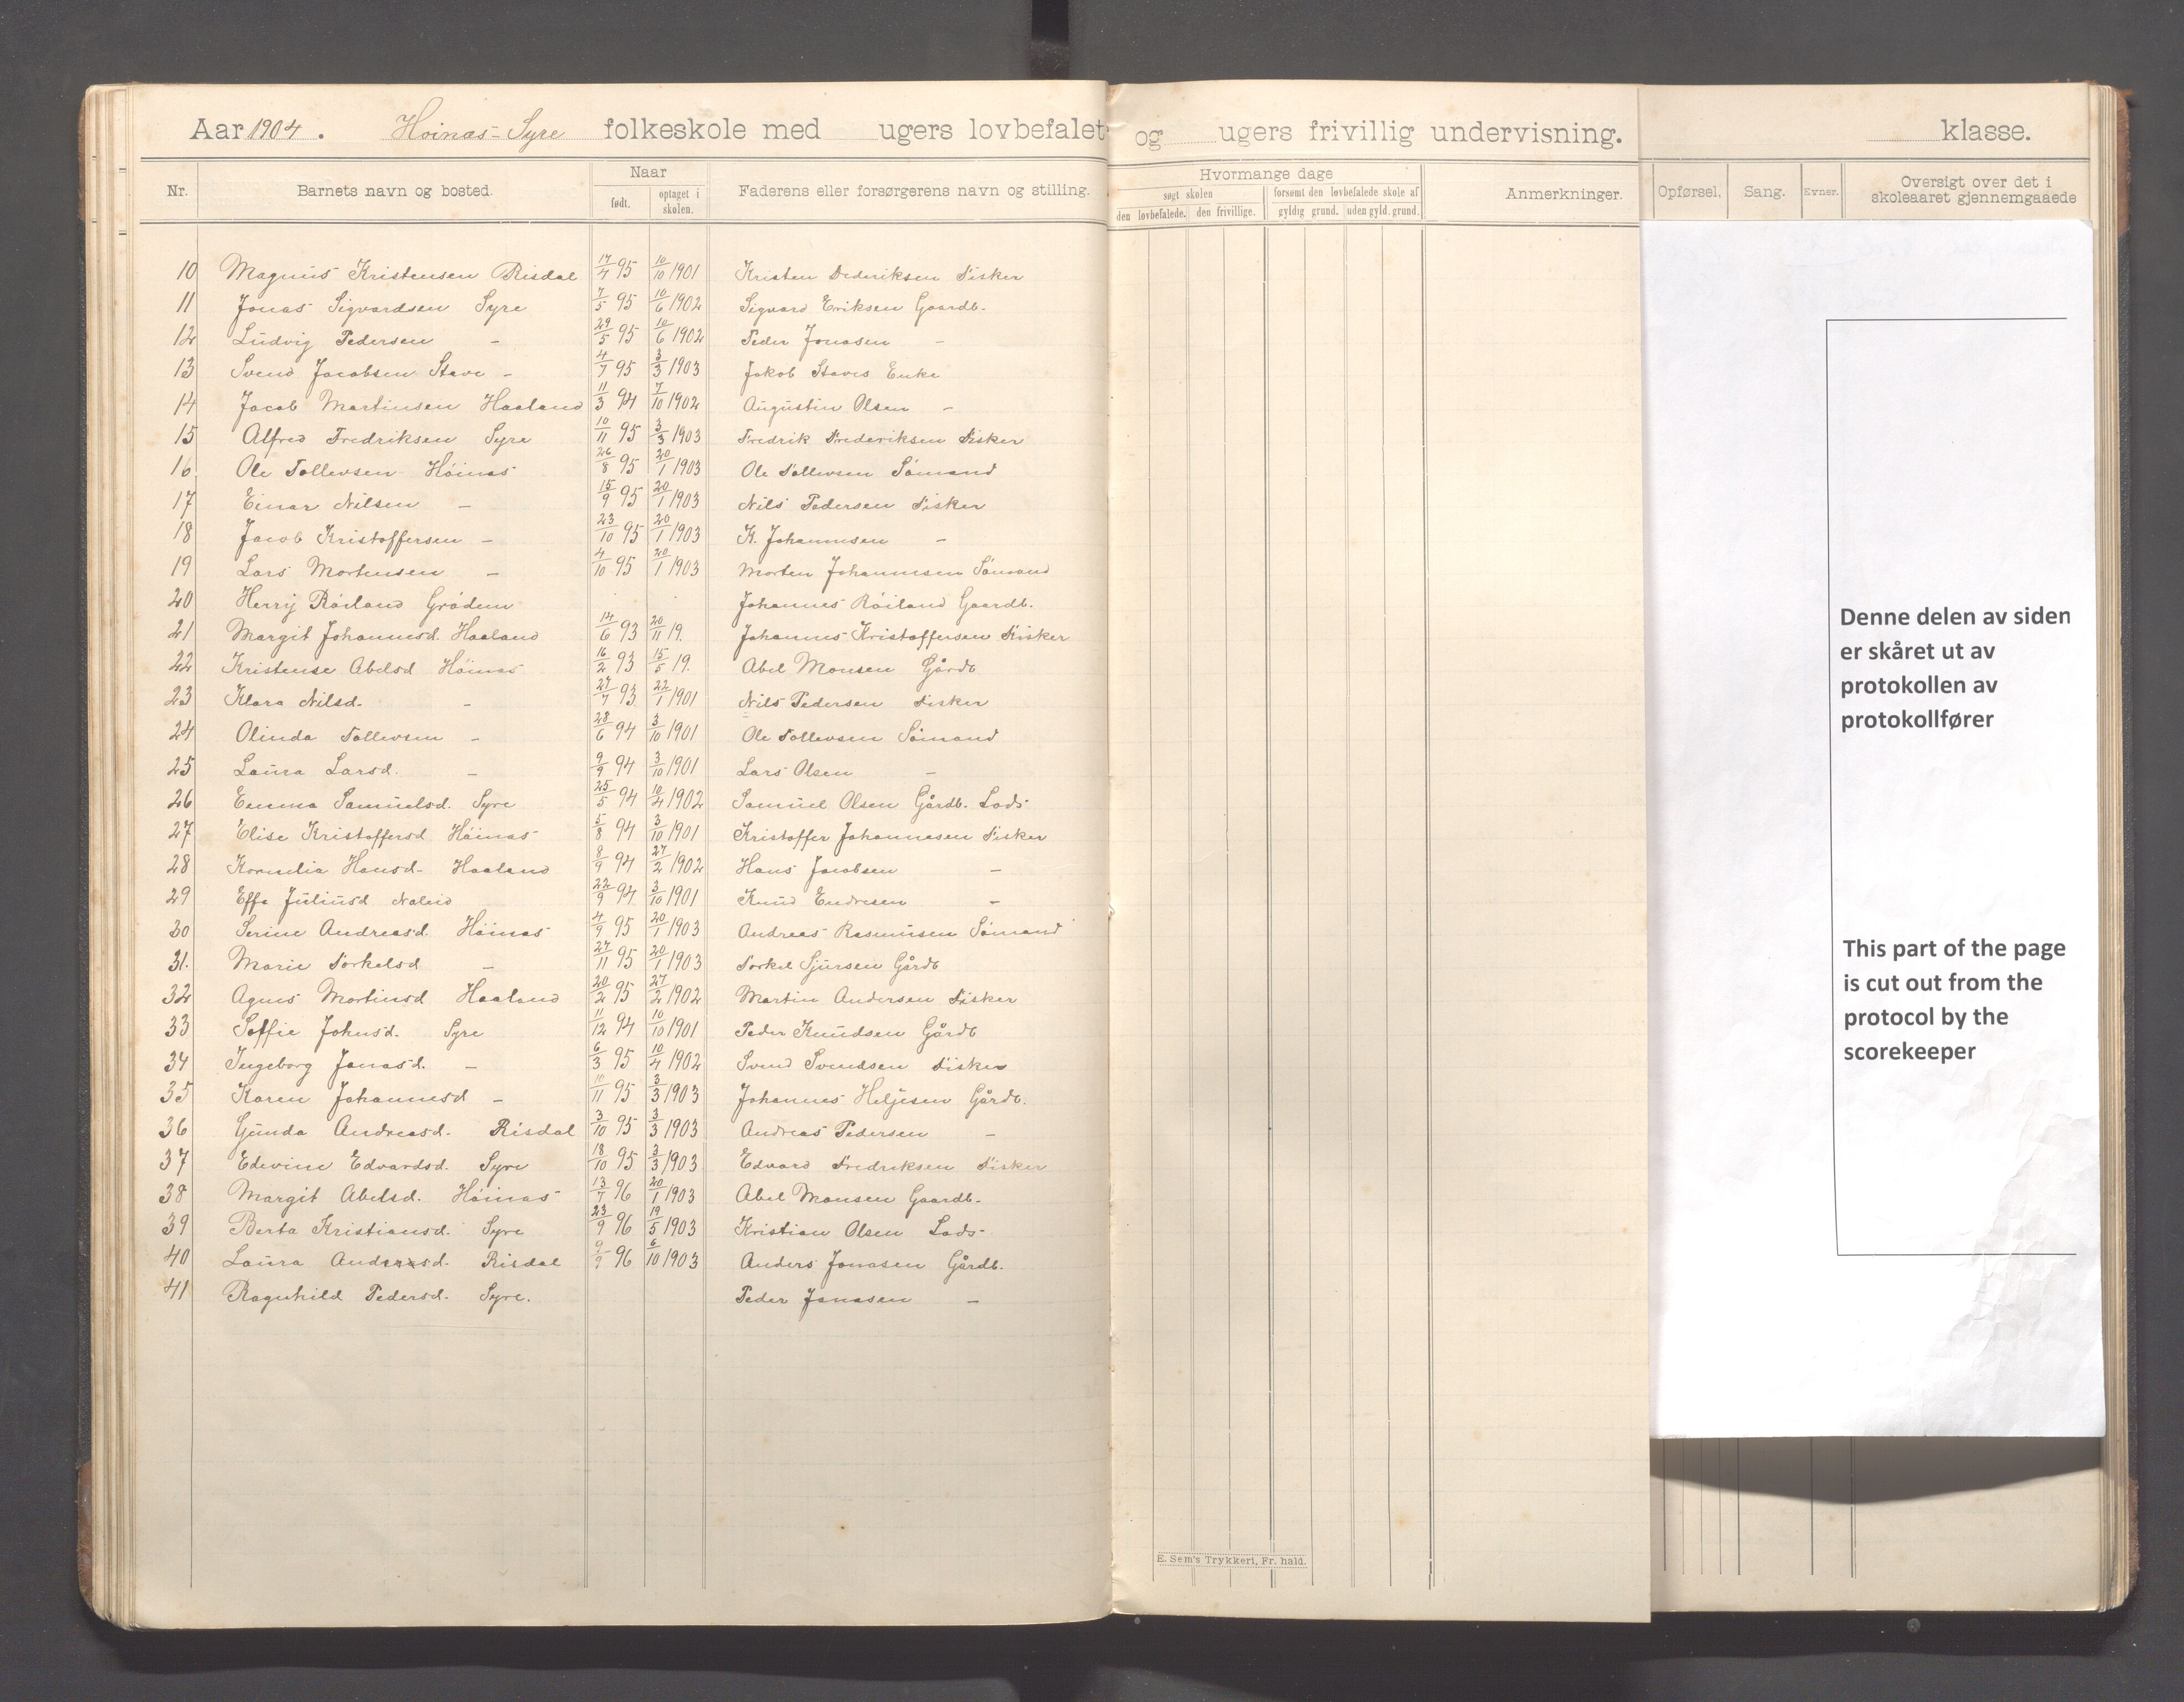 Aar 1904. Hoinæs-Syre folkeskole med ugers lovbefalet og ugers frivillig undervisning. klasse.
Nr. Barnets navn og bosted. Naar Faderens eller forsørgerens navn og stilling. Hvormange dage Anmerkninger. Opførsel. Sang. Evner. Oversigt over det i skoleaaret gjennemgaaede
født. optaget i skolen. søgt skolen forsømt den lovbefalede skole af
den lovbefalede. den frivillige. gyldig grund. uden gyld. grund.
10 Magnus Kristensen Risdal 17/4 95 10/10 1901 Kristen Dederiksen Fisker
11 Jonas Sigvardsen Syre 7/5 95 10/6 1902 Sigvard Eriksen Gaardb.
12 Ludvig Pedersen - 29/5 95 10/6 1902 Peder Jonasen -
13 Svend Jacobsen Stave - 4/7 95 3/3 1903 Jakob Staves Enke
14 Jacob Martinsen Haaland 11/3 94 7/10 1902 Augustin Olsen -
15 Alfred Fredriksen Syre 10/11 95 3/3 1903 Fredrik Frederiksen Fisker
16 Ole Tollevsen Höinæs 26/8 95 20/1 1903 Ole Tollevsen Sömand
17 Einar Nilsen - 15/9 95 20/1 1903 Nils Pedersen Fisker
18 Jacob Kristoffersen - 23/10 95 20/1 1903 K. Johannesen -
19 Lars Mortensen - 4/10 95 20/1 1903 Morten Johannesen Sömand
20 Herrij Röiland Grödem Johannes Röiland Gaardb.
21 Margit Johannesd. Haaland 14/6 93 20/11 19. Johannes Kristoffersen Fisker
22 Kristense Abelsd Höinæs 16/2 93 15/5 19. Abel Monsen Gårdb
23 Klara Nilsd. - 27/7 93 22/1 1901 Nils Pedersen Fisker
24 Olinda Tollevsen - 28/6 94 3/10 1901 Ole Tollevsen Sömand
25 Laura Larsd. - 9/9 94 3/10 1901 Lars Olsen -
26 Emma Samuelsd. Syre 25/5 94 10/4 1902 Samuel Olsen Gårdb. Lods
27 Elise Kristoffersd Höinæs 5/8 94 3/10 1901 Kristoffer Johannesen Fisker
28 Kornelia Hansd. Haaland 8/9 94 27/2 1902 Hans Jacobsen -
29 Effe Juliusd 22/9 94 3/10 1901 Knud Endresen -
30 Serine Andreasd. Höinæs 4/9 95 20/1 1903 Andreas Rasmusen Sömand
31. Marie Torkelsd - 27/11 95 20/1 1903 Torkel Sjursen Gårdb
32 Agnes Martinsd Haaland 20/2 95 27/2 1902 Martin Andersen Fisker
33 Soffie Johnsd. Syre 11/12 94 10/10 1901 Peder Knudsen Gårdb
34 Ingeborg Jonasd. - 6/3 95 10/4 1902 Svend Svendsen Fisker
35 Karen Johannesd - 10/11 95 3/3 1903 Johannes Heljesen Gårdb.
36 Gunda Andreasd. Risdal 3/10 95 3/3 1903 Andreas Pedersen -
37 Edevine Edvardsd. Syre 18/10 95 3/3 1903 Edvard Fredriksen Fisker
38 Margit Abelsd. Höinæs 13/7 96 20/1 1903 Abel Monsen Gaardb.
39 Berta Kristiansd. Syre 23/9 96 19/5 1903 Kristian Olsen Lods
40 Laura Andersd. Risdal 9/9 96 6/10 1903 Anders Jonasen Gårdb.
41 Ragnhild Pedersd. Syre. Peder Jonasen -
E. Sem's Trykkeri, Fr. hald.
Denne delen av siden
er skåret ut av
protokollen av
protokollfører
This part of the page
is cut out from the
protocol by the
scorekeeper